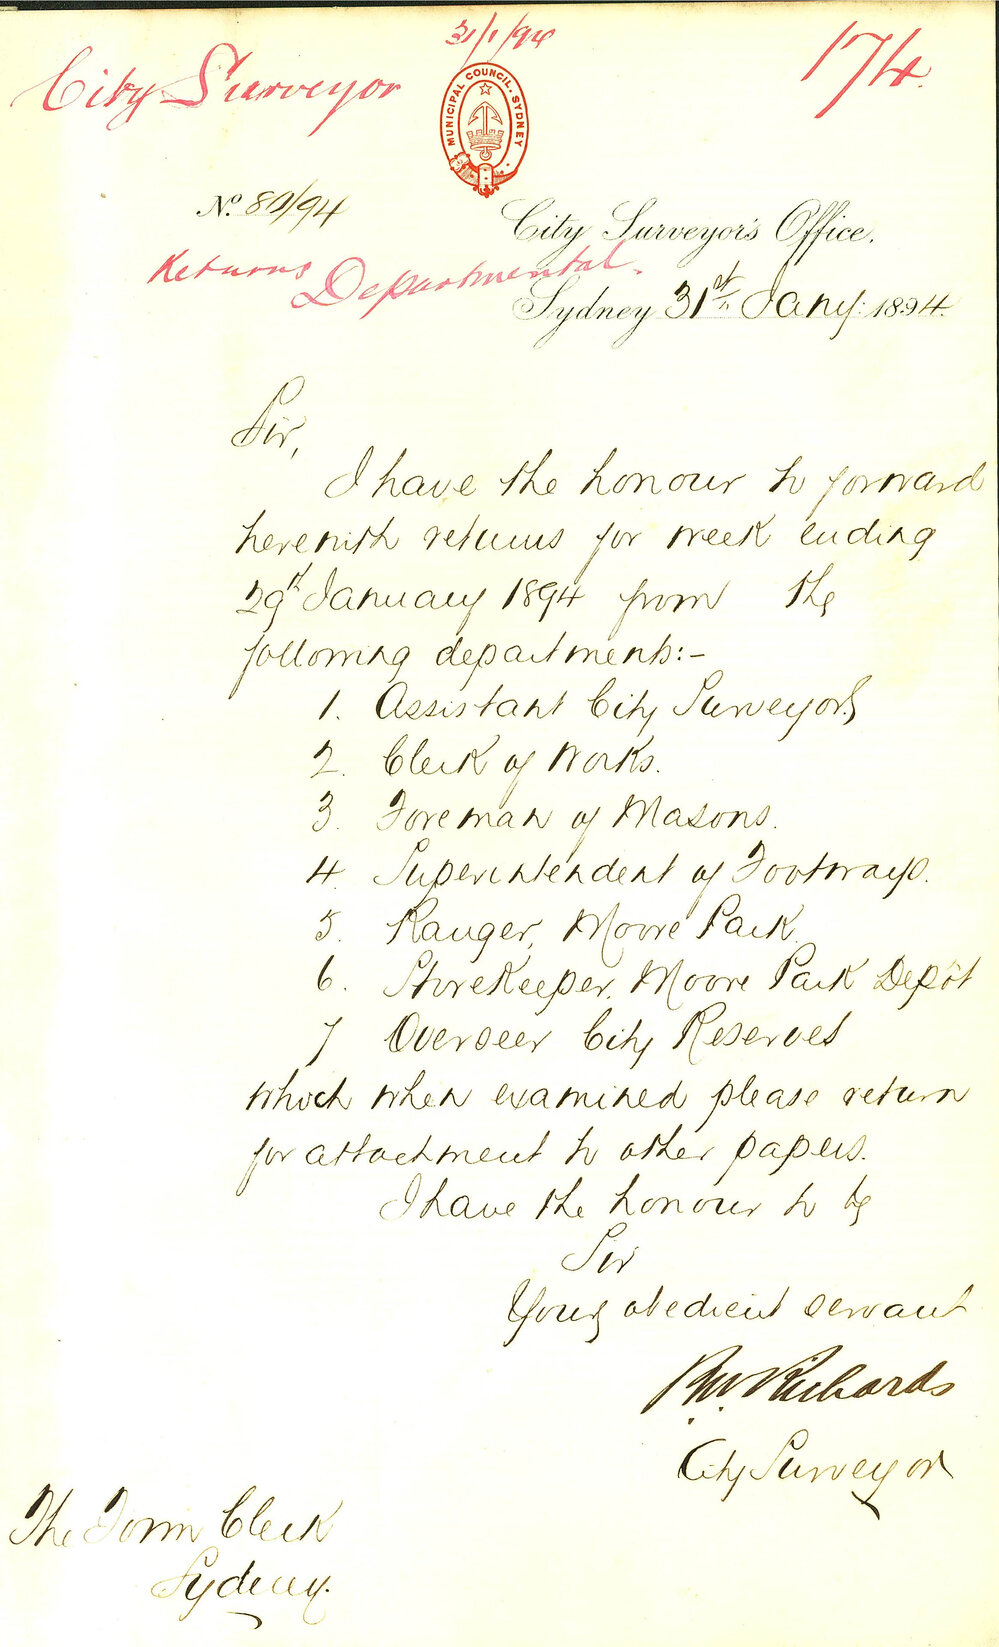 31/1/94
174.
City Surveyor
MUNICIPAL COUNCIL. SYDNEY
No. 80/94
City Surveyor's Office.
Returns Departmental.
Sydney 31st Jany. 1894.
Sir,
I have the honour to forward
herewith returns for week ending
29th January 1894 from the
following departments:-
1. Assistant City Surveyors
2. Clerk of Works.
3. Foreman of Masons.
4. Superintendent of Footways.
5. Ranger, Moore Park
6. Storekeeper, Moore Park Depôt
7 Overseer City Reserves
which when examined please return
for attachment to other papers.
I have the honour to be
Sir
Your obedient servant
RW. Richards
City Surveyor
The Town Clerk
Sydney.